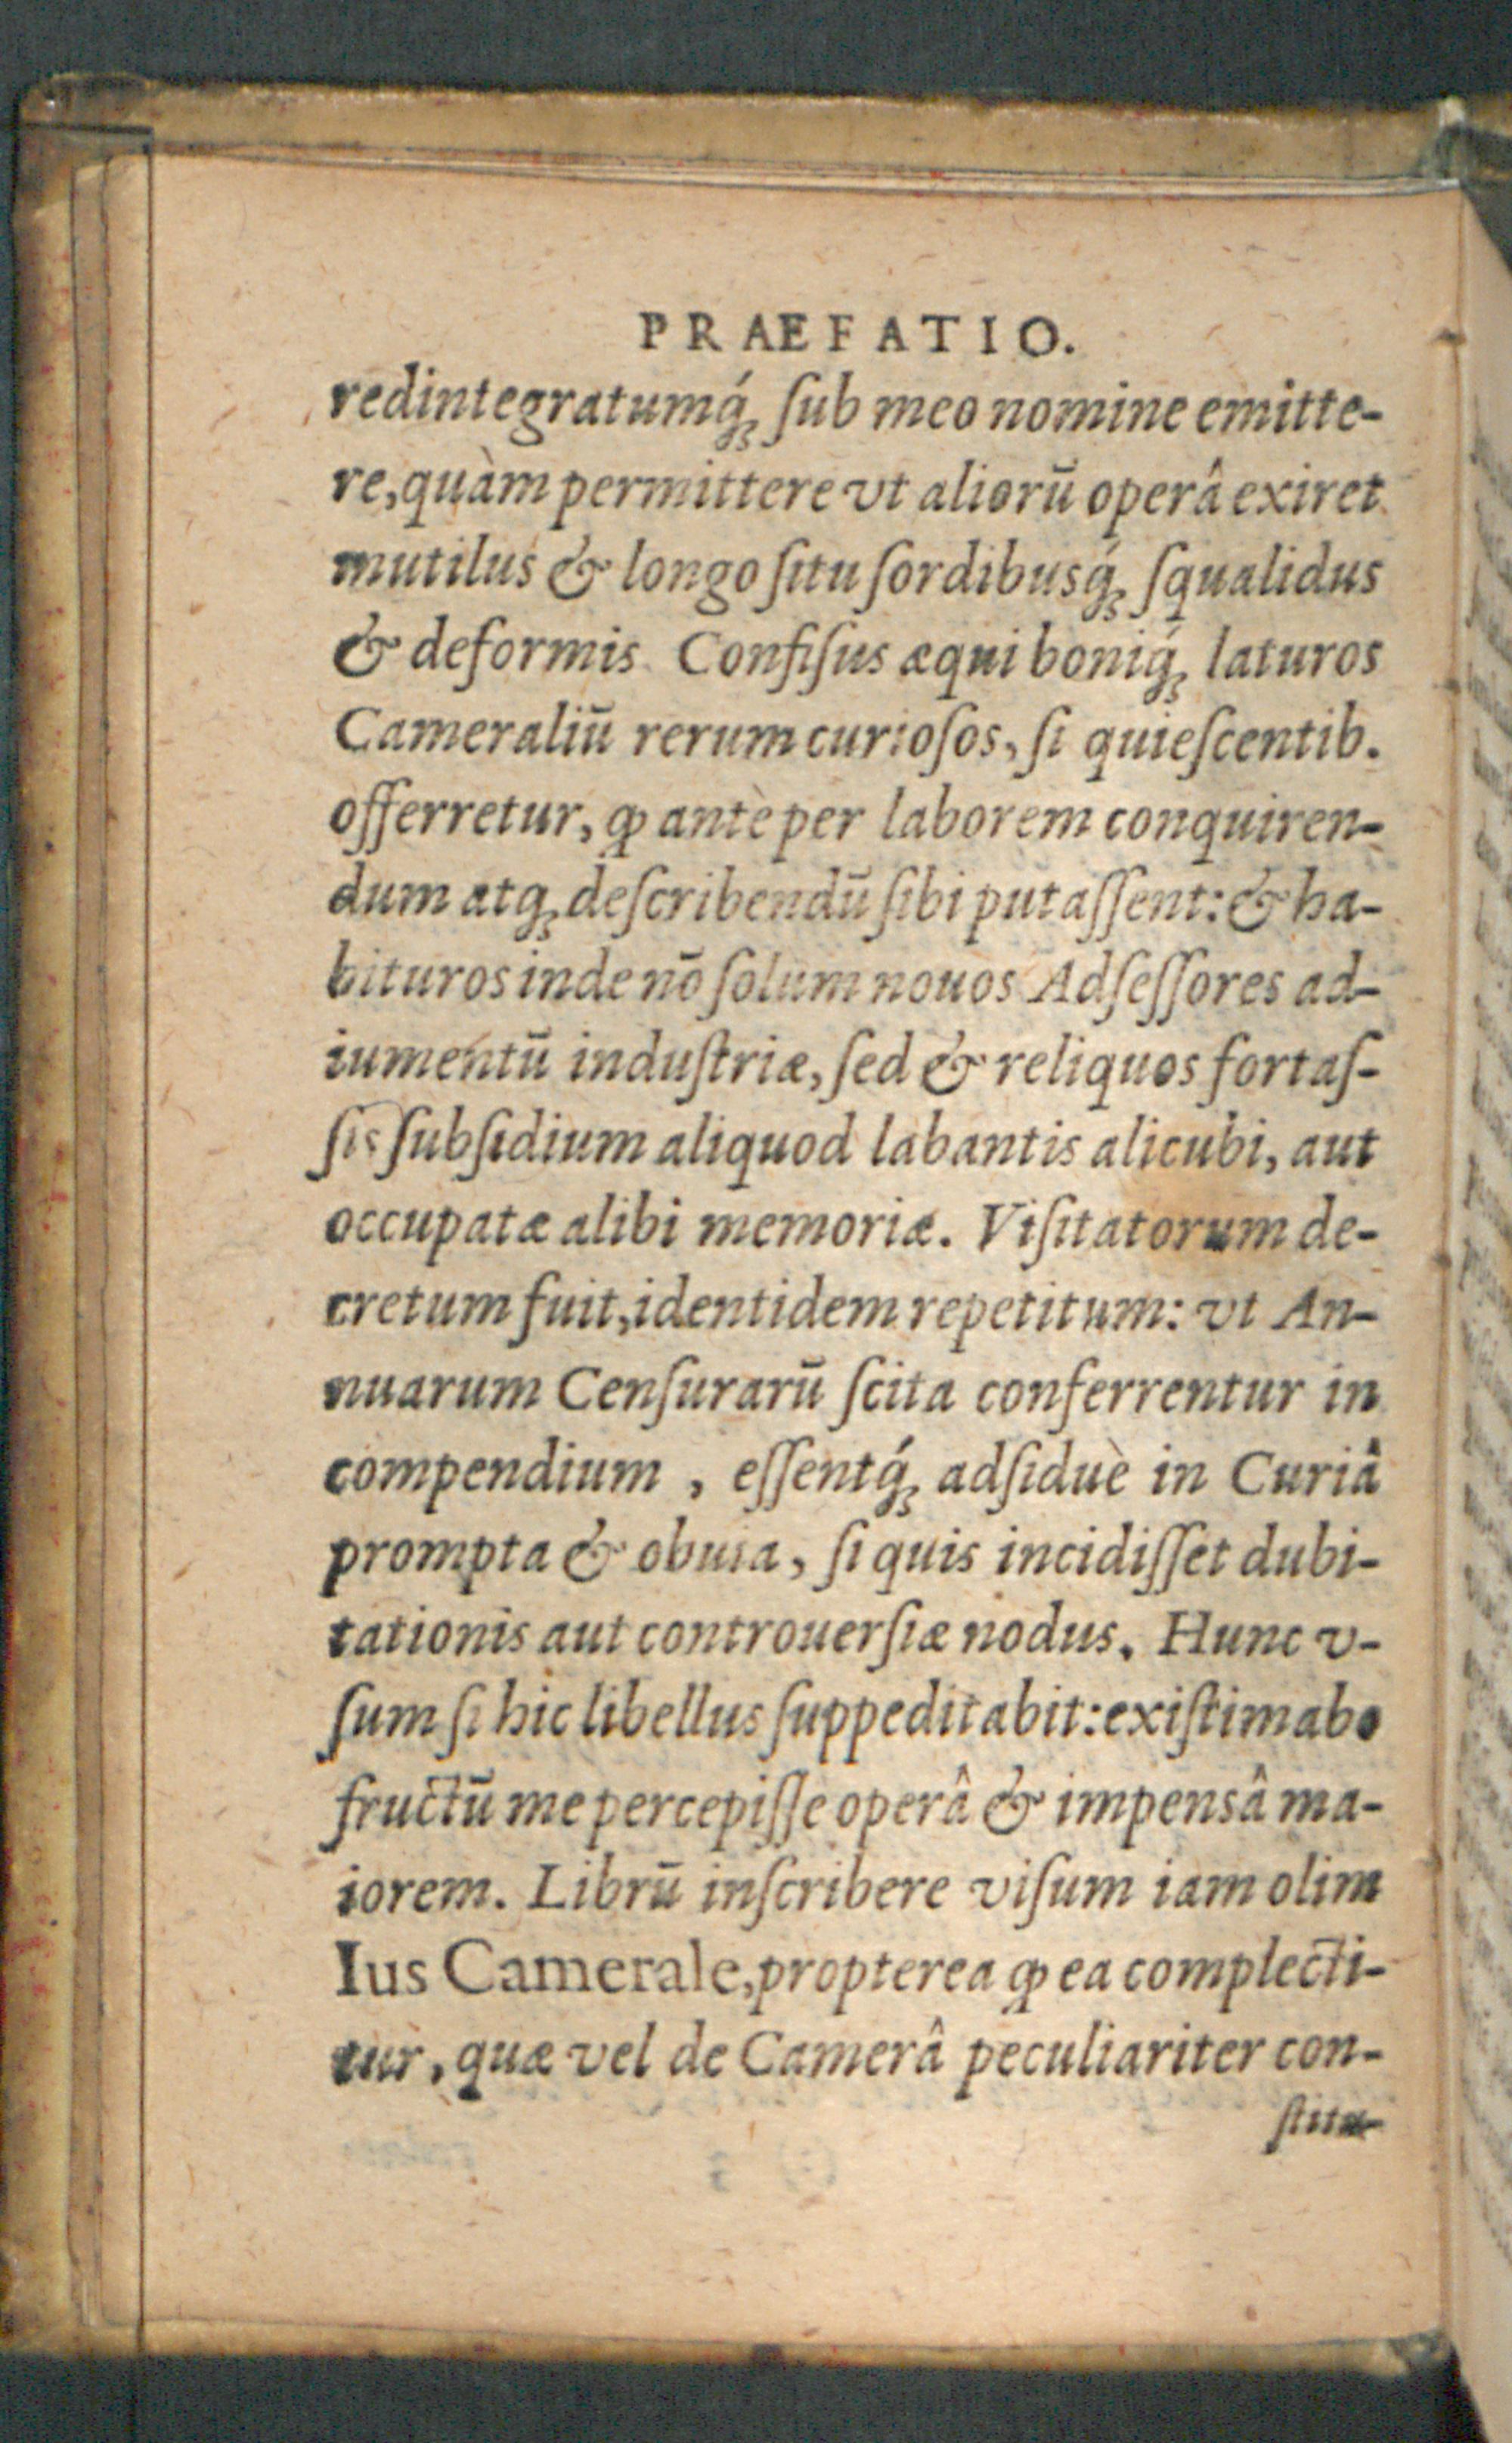 PRAEFATIO.
redintegratumq́ꝫ ſub meo nomine emitte-
re, quàm permittere vt aliorū operâ exiret
mutilus & longo ſitu ſordibusq́ꝫ ſqualidus
& deformis. Confiſus æqui boniq́ꝫ laturos
Cameraliū rerum curioſos, ſi quieſcentib.
offerretur, ꝙ antè per laborem conquiren-
dum atqꝫ deſcribendū ſibi putaſſent: & ha-
bituros inde nō ſolum nouos Adſeſſores ad-
iumentū induſtriæ, ſed & reliquos fortaſ-
ſis ſubſidium aliquod labantis alicubi, aut
occupatæ alibi memoriæ. Viſitatorum de-
cretum fuit, identidem repetitum: vt An-
nuarum Cenſurarū ſcita conferrentur in
compendium , eſſentq́ꝫ adſiduè in Curiâ
prompta & obuia, ſi quis incidiſſet dubi-
tationis aut controuerſiæ nodus. Hunc v-
ſum ſi hic libellus ſuppeditabit: exiſtimabo
fructū me percepiſſe operâ & impensâ ma-
iorem. Librū inſcribere viſum iam olim
Ius Camerale, propterea ꝙ ea complecti-
tur, quæ vel de Camerâ peculiariter con-
ſtitu-